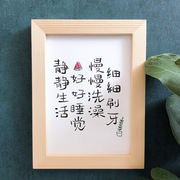 細細刷牙
慢慢洗澡
好好睡觉
静静生活